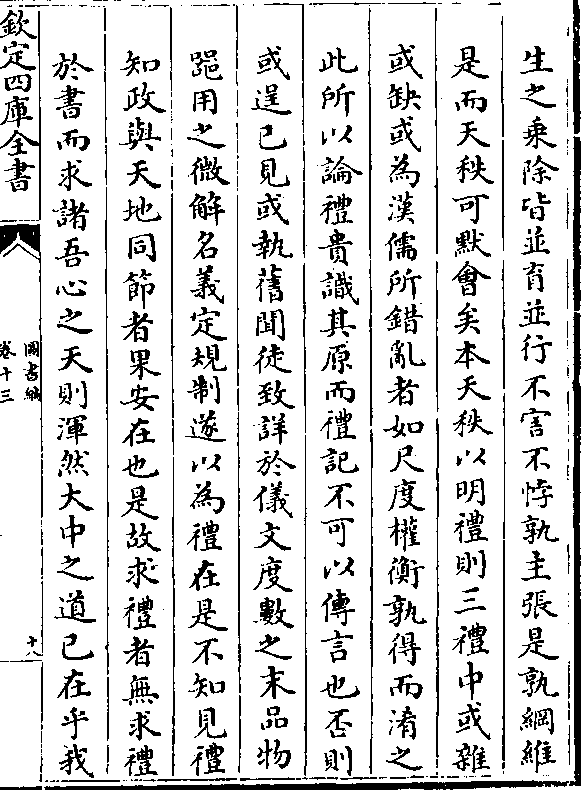 生之乘除皆並育並行不害不悖孰主張是孰綱維
是而天秩可默會矣本天秩以明禮則三禮中或雜
或缺或為漢儒所錯亂者如尺度權衡孰得而淆之
此所以論禮貴識其原而禮記不可以傳言也否則
或逞已見或執舊聞徒致詳於儀文度數之末品物
器用之微解名義定規制遂以為禮在是不知見禮
知政與天地同節者果安在也是故求禮者無求禮
於書而求諸吾心之天則渾然大中之道已在乎我
欽定四庫全書
圖書編
卷十三
十八